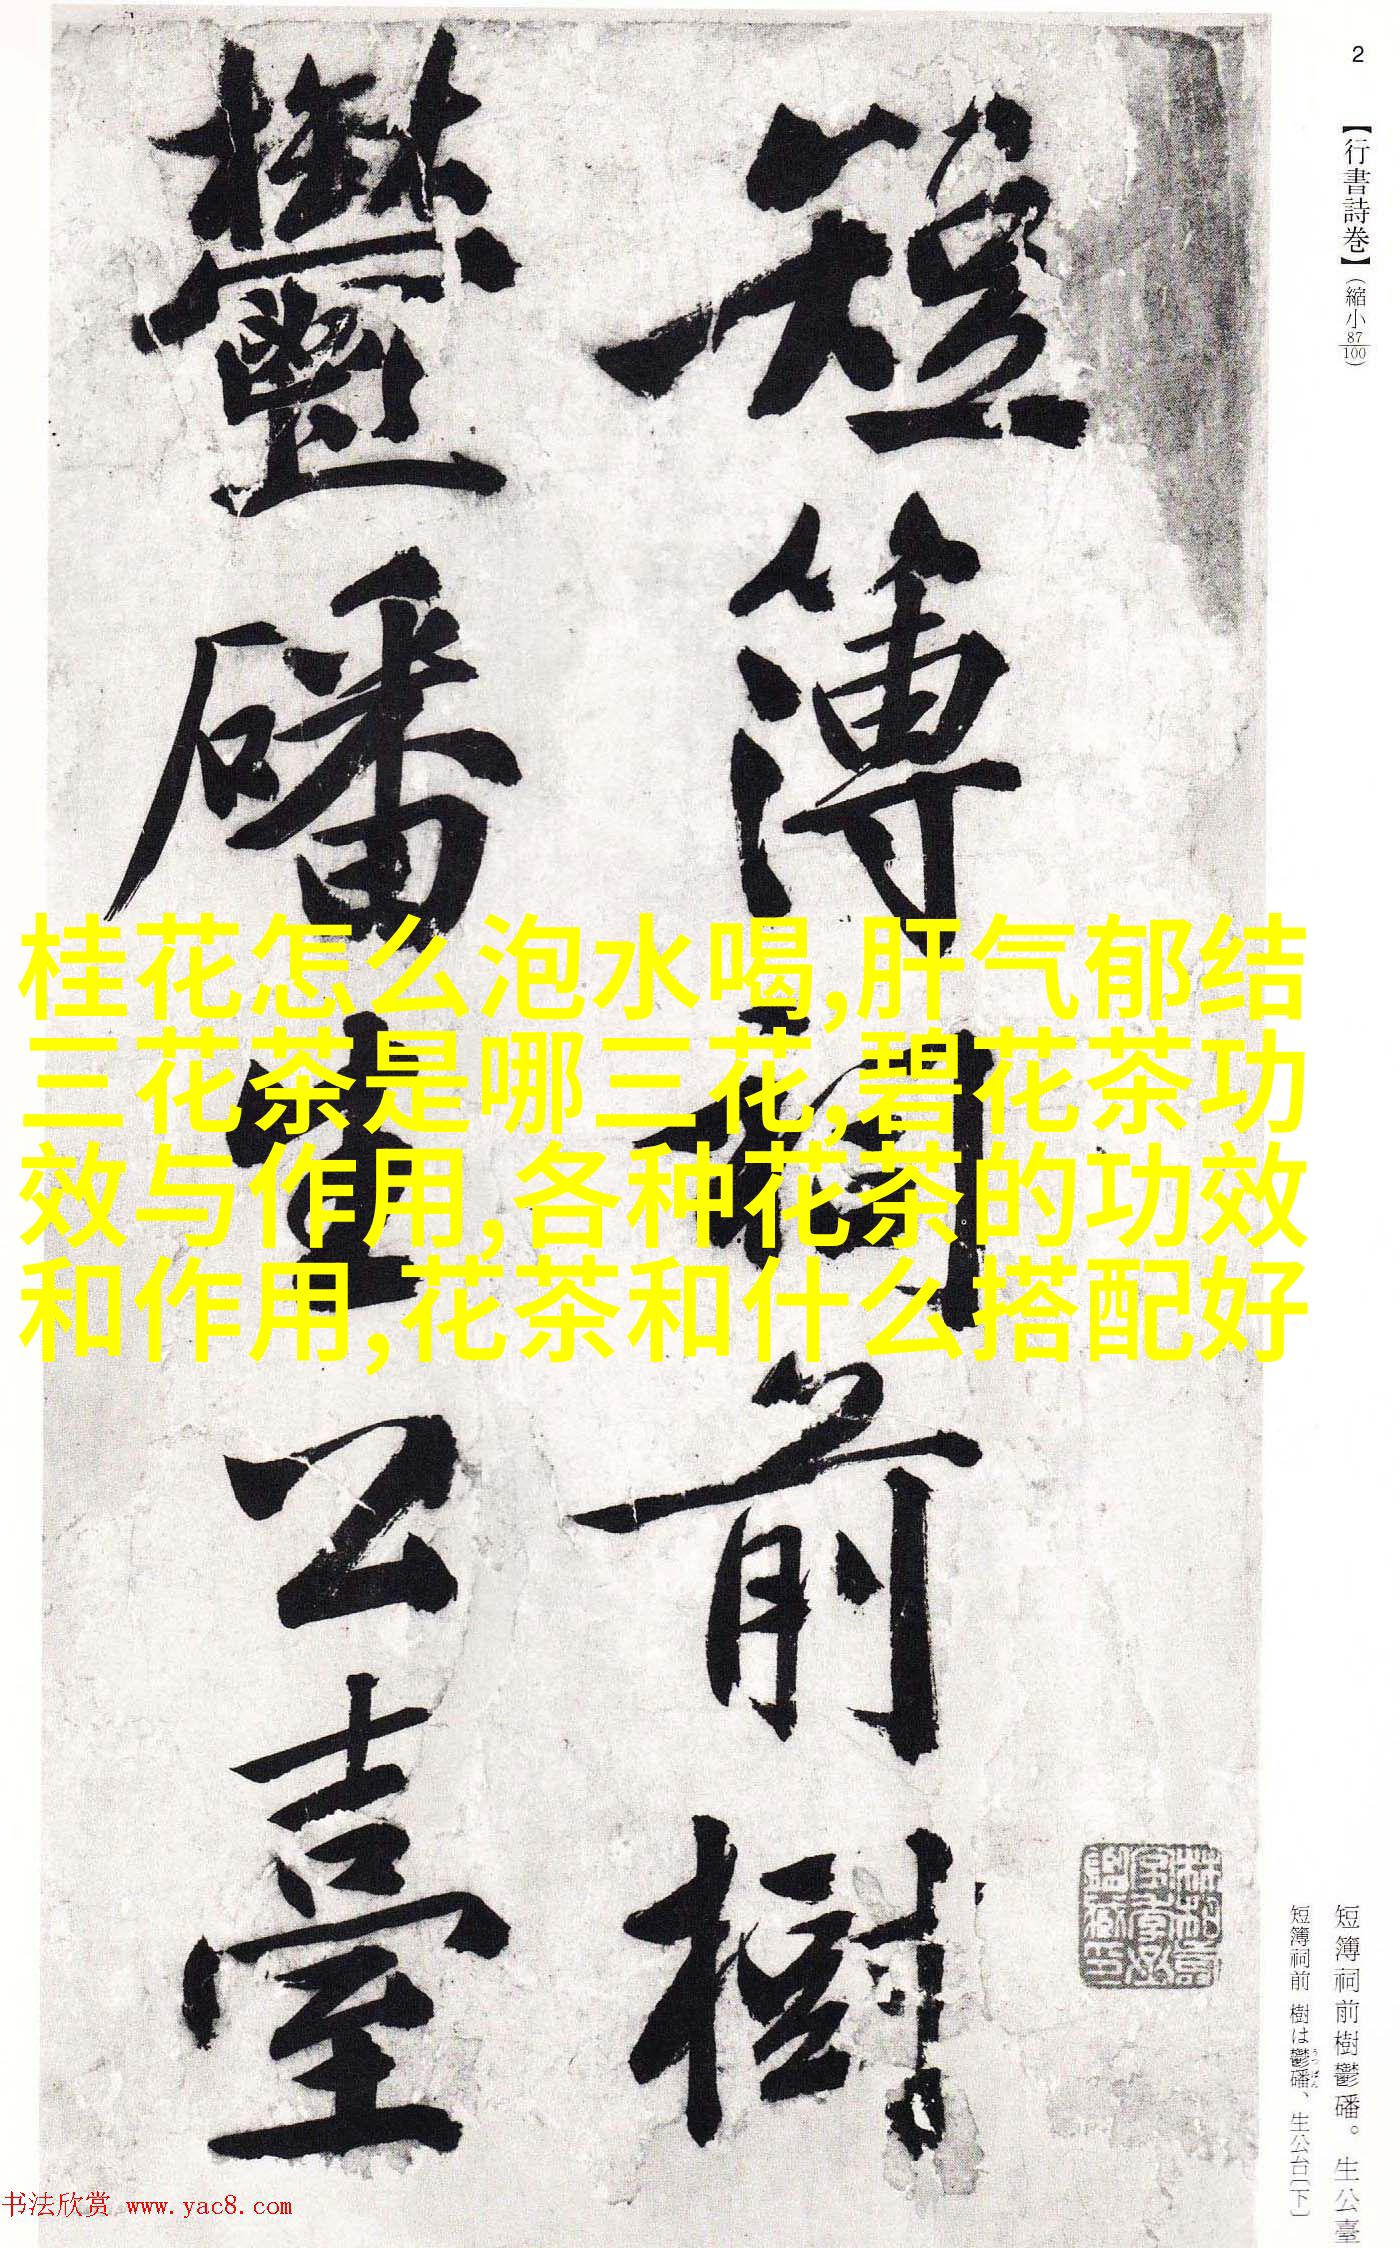 2
【行書詩巻】(縮小87/100)
短簿祠前樹
鬱磻生公臺
桂花怎么泡水喝,肝气郁结
三花茶是哪三花,碧花茶功
效与作用,各种花茶的功效
和作用,花茶和什么搭配好
短簿祠前樹鬱磻。生公臺
短簿祠前 樹は鬱磻、生公台〔下〕
うっぱん
书法欣赏 www.yac8.com